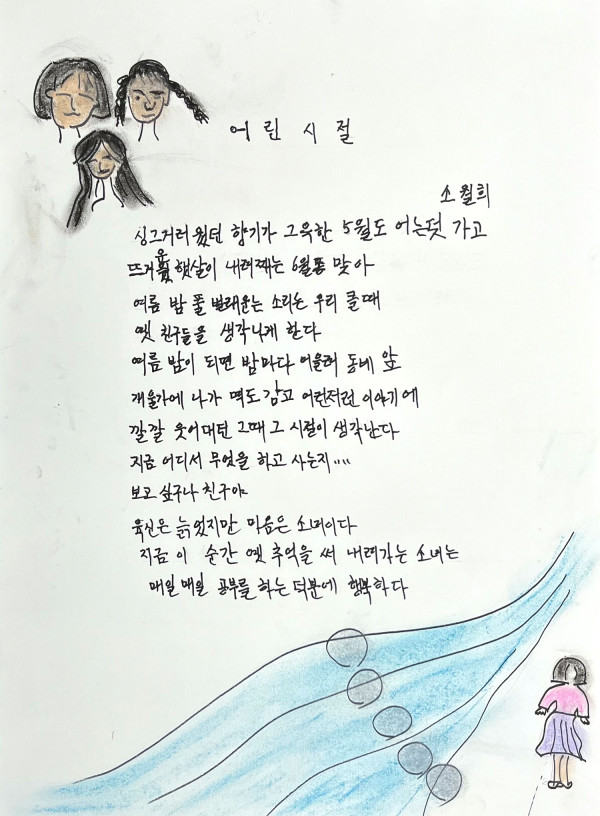 어린시절
소월희
싱그거러웠던 향기가 그윽한 5월도 어는덧 가고
뜨거운 햇살이 내려째는 6월쯤 맞아
여름 밤 풀벌래우는 소리는 우리 클때
옛 친구들을 생각나게 한다
여름 밤이 되면 밤마다 어울려 동네 앞
개울가에 나가 멱도 감고 이런저런 이야기에
깔깔 웃어대던 그때 그 시절이 생각난다
지금 어디서 무엇을 하고 사는지....
보고 싶구나 친구야
육신은 늙었지만 마음은 소녀이다
지금 이 순간 옛 추억을 써 내려가는 소녀는
매일매일 공부를 하는 덕분에 행복하다